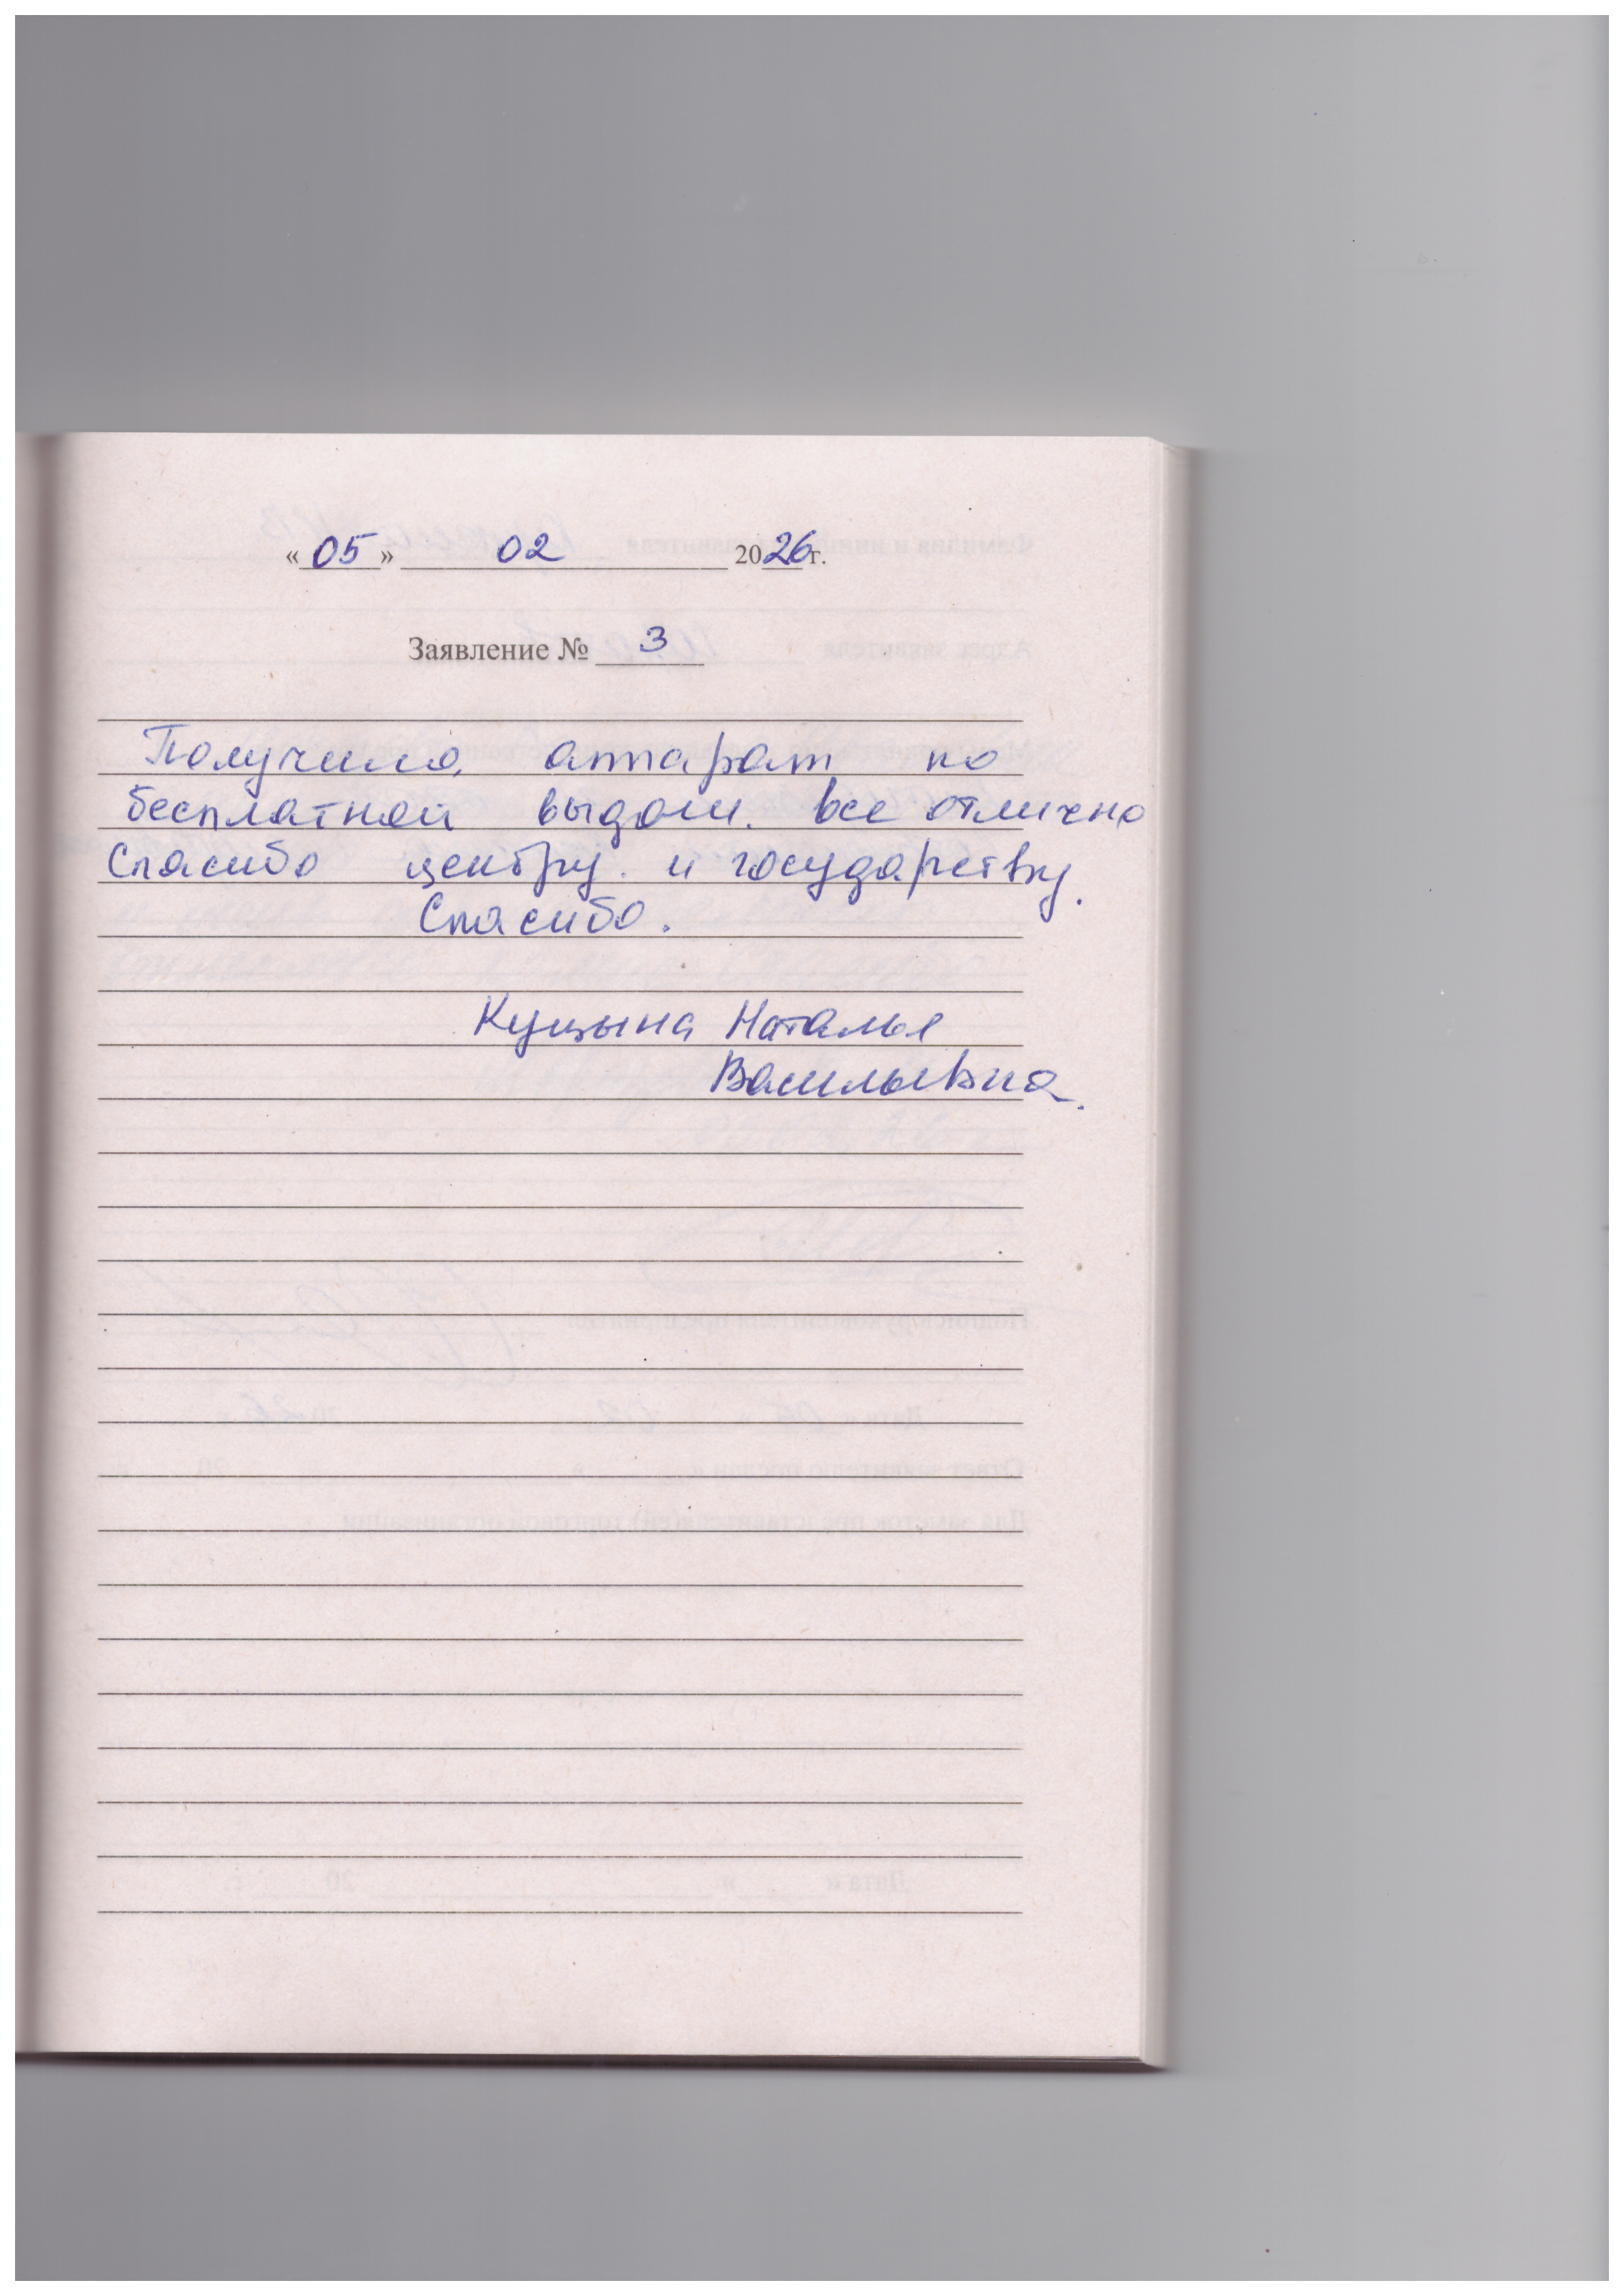 «05» 02 2026 г.
Заявление № 3
Получила аппарат по
бесплатной выдач. все отлично
Спасибо центру. и государству.
Спасибо.
Куцына Наталья
Васильевна.